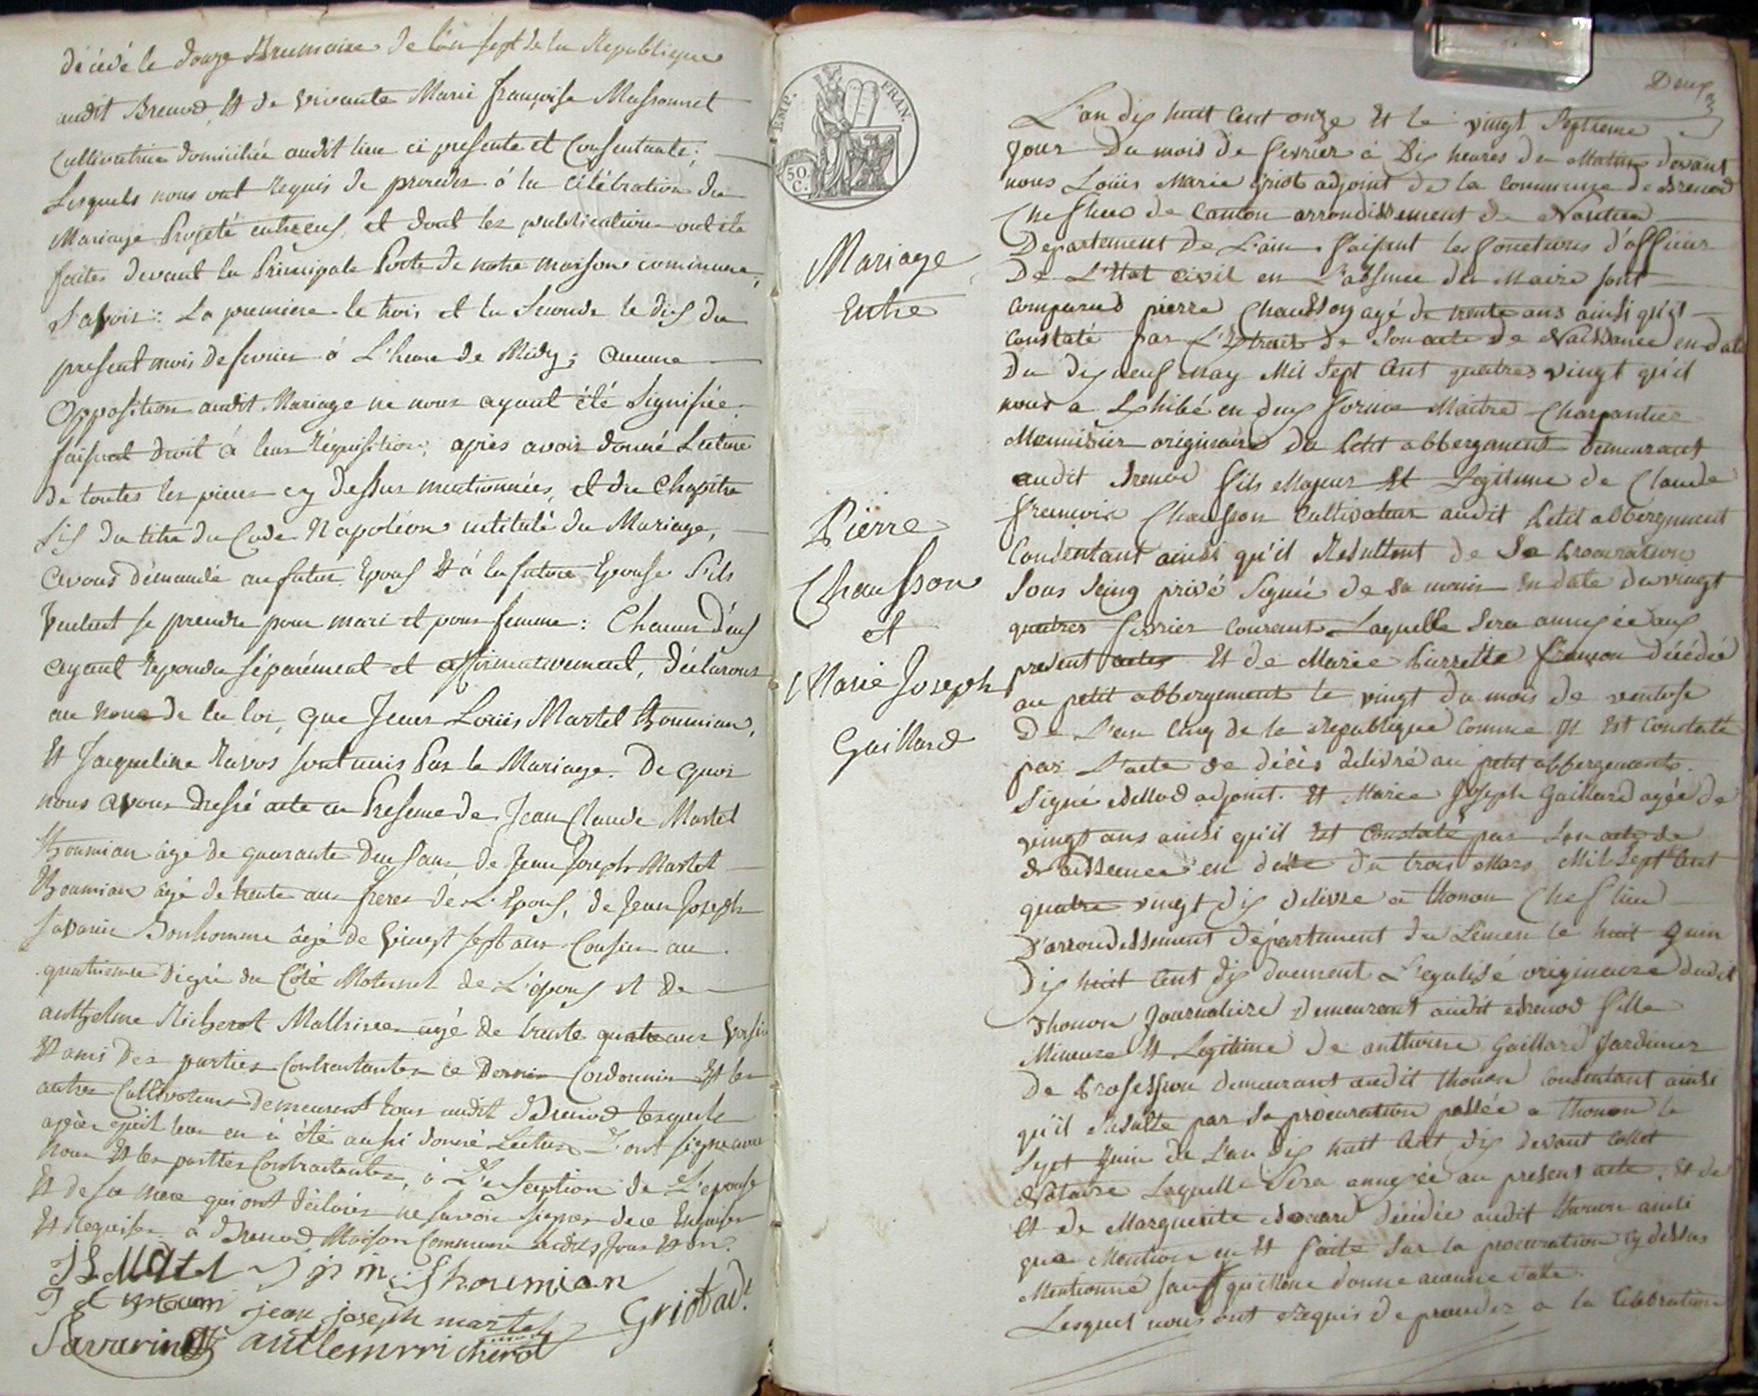 décédé le douze Brumaire de l'an sept de la Republique
audit Brenod, et de vivante Marie françoise Massonnet
Cultivatrice domiciliée audit lieu ci presente et Consentante;
Lesquels nous ont requis de proceder à la célébration du
Mariage Projeté entr'eux, et dont les publications ont été
faites devant la Principale Porte de notre maison commune,
Savoir: La premiere le trois et la Seconde le dix du
present mois de fevrier à L'heure de Midy; aucune
Opposition audit Mariage ne nous ayant été Signifiée
faisant droit à leur Réquisition; après avoir donné Lecture
de toutes les pieces cy dessus mentionnées, et du Chapitre
six du titre du Code Napoléon intitulé du Mariage,
avons démandé au futur Epoux et à la future Epouse s'ils
veulent se prendre pour mari et pour femme: Chacun d'eux
ayant repondu séparément et affirmativement, déclarons
au nom de la loi, que Jean Louis Martel Thoumian,
et Jacqueline Ravos sont unis Par le Mariage. De quoi
nous avons dressé acte en Presence de Jean Claude Martel
Thoumian âgé de quarante deux ans, de Jean Joseph Martel
Thoumian âgé de trente ans freres de L'Epoux, de Jean Joseph
Savarin Bonhomme âgé de vingt sept ans Cousin au
quatrieme degré du Côté Maternel de L'épous et de
anthelme Richerot âgé de trente quatre ans voisin
et ami des parties Contractantes ce dernier Cordonnier et les
autres Cultivateurs demeurent tous audit Brenod lesquels
après qu'il leur en a été aussi donné Lecture L'ont signé avec
nous et les parties Contractantes, à L'exception de L'epouse
et de sa mere qui ont déclarés ne savoir signer de ce Enquises
et Requises à Brenod Maison Commune audits Jour et an.
thoumian
jean joseph martel
Griot adt.
Savarin
antlemrricherot
EMP. FRAN.
50. C.
Mariage
Entre
Pierre
Chausson
et
Marie Joseph
Gaillard
Deux
L'an dix huit Cent onze et le vingt Septieme
Jour Du mois de fevrier à Dix heures du Matin devant
nous Louis Marie Griot adjoint de la Commune de Brenod
Chef lieu de Canton arrondissement de Nantua
Departement de L'ain faisant les fonctions d'officier
De L'Etat Civil en L'absence du Maire sont
comparus pierre Chausson agé de trente ans ainsi qu'il
Constaté par L'Extrait de Son acte de Naissance en date
Du dix neuf may Mil Sept Cent quatres vingt qu'il
nous a Exhibé en deux forme Maitre Charpantier
Menuisier originaire du Petit abbergement demeurant
audit Brenod fils Majeur et Legitime de Claude
françois Chausson Cultivateur audit Petit abbergement
Consentant ainsi qu'il Resultent de Sa procuration
Sous Seing privé Signée de Sa main En date du vingt
quatres fevrier Courent Laquelle Sera annexée aux
present actes Et de Marie Pierrette françon décédée
au petit abbergement le vingt du mois de ventose
De L'an Cinq de la Republique Comme Il Est Constaté
par L'acte de décès délivré au petit abbergement
Signé adjoint. Et Marie Joseph Gaillard agée de
vingt ans ainsi qu'il Est Constaté par Son acte de
Naissance en date du trois Mars Mil Sept Cent
quatre vingt dix délivré à thonon Chef lieu
D'arrondissement département du Léman le huit Juin
Dix huit Cent dix duement Légalisé originaire dudit
Thonon Journaliere demeurant audit Brenod fille
Mineure Et Legitime de anthoine Gaillard Jardinier
De Profession demeurant audit thonon Consentant ainsi
qu'il Résulte par Sa procuration passée a thonon le
Sept Juin de L'an Dix huit Cent dix devant Collet
Notaire Laquelle Sera annexée au present acte, Et de
Et de Marguerite décédée audit thonon ainsi
que Mention en Et faite Sur la procuration cy dessus
Mentionné sauf qu'Elle ne donne aucune date.
Lesquel nous ont Requis de proceder a la Celebration